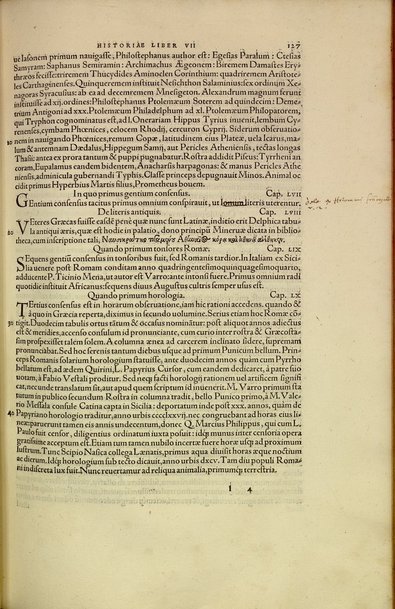 HISTORIÆ LIBER VII 127
ue Iasonem primum nauigasse, Philostephanus author est: Egesias Paralum: Ctesias
Samyram: Saphanus Semiramin: Archimachus Ægeonem: Biremem Damastes Ery-
thræos fecisse: triremem Thucydides Aminoclen Corinthium: quadriremem Aristote-
les Carthaginenses. Quinqueremem instituit Nesichthon Salaminius: sex ordinũ Xe-
nagoras Syracusius: ab ea ad decemremem Mnesigeton. Alexandrum magnum ferunt
instituisse ad xij. ordines: Philostephanus Ptolemæum Soterem ad quindecim: Deme-
trium Antigoni ad xxx. Ptolemæum Philadelphum ad xl. Ptolemæum Philopatorem,
qui Tryphon cognominatus est, ad l. Onerariam Hippus Tyrius inuenit, lembum Cy-
renenses, cymbam Phœnices, celocem Rhodij, cercuron Cyprij. Siderum obseruatio-
10 nem in nauigando Phœnices, remum Copæ, latitudinem eius Plateæ, uela Icarus, ma-
lum & antennam Dædalus, Hippegum Samij, aut Pericles Atheniensis, tectas longas
Thasii: antea ex prora tantum & puppi pugnabatur. Rostra addidit Piseus: Tyrrheni an
coram, Eupalamus eandem bidentem, Anacharsis harpagonas: & manus Pericles Athe
niensis, adminicula gubernandi Typhis. Classe princeps depugnauit Minos. Animal oc
cidit primus Hyperbius Martis filius, Prometheus bouem.
In quo primus gentium consensus. Cap. LVII
Gentium consensus tacitus primus omnium conspirauit, ut Ionum literis uterentur.
De literis antiquis. Cap. LVIII
Veteres Græcas fuisse easdẽ penè quæ nunc sunt Latinæ, inditio erit Delphica tabu-
20 la antiqui æris, quæ est hodie in palatio, dono principũ Mineruæ dicata in biblio-
theca, cum inscriptione tali,
Quando primum tonsores Romæ. Cap. LIX
Sequens gentiũ consensus in tonsoribus fuit, sed Romanis tardior. In Italiam ex Sici
lia uenere post Romam conditam anno quadringentesimoquinquagesimoquarto,
adducente P. Ticinio Mena, ut autor est Varro: ante intonsi fuere. Primus omnium radi
quotidie instituit Africanus: sequens diuus Augustus cultris semper usus est.
Quando primum horologia. Cap. LX
Tertius consensus est in horarum obseruatione, iam hic rationi accedens. quando &
à quo in Græcia reperta, diximus in secundo uolumine. Serius etiam hoc Romæ cõ-
30 tigit. Duodecim tabulis ortus tãtum & occasus nominãtur: post aliquot annos adiectus
est & meridies, accenso consulum id pronunciante, cum curio inter rostra & Græcosta-
sim prospexisset talem solem. A columna ænea ad carcerem inclinato sidere, supremam
pronunciabat. Sed hoc serenis tantum diebus usque ad primum Punicum bellum. Prin-
ceps Romanis solarium horologium statuisse, ante duodecim annos quàm cum Pyrrho
bellatum est, ad ædem Quirini, L. Papyrius Cursor, cum eandem dedicaret, à patre suo
uotam, à Fabio Vestali proditur. Sed neq; facti horologij rationem uel artificem signifi
cat, nec unde translatum sit, aut apud quem scriptum id inuenerit. M. Varro primum sta
tutum in publico secundum Rostra in columna tradit, bello Punico primo, à M. Vale
rio Messala consule Catina capta in Sicilia: deportatum inde post xxx. annos, quàm de
40 Papyriano horologio traditur, anno urbis cccclxxvij. nec congruebant ad horas eius li-
neæ: paruerunt tamen eis annis undecentum, donec Q. Martius Philippus, qui cum L.
Paulo fuit censor, diligentius ordinatum iuxta posuit: idq́; munus inter censoria opera
gratissime acceptum est. Etiam tum tamen nubilo incertæ fuere horæ usq; ad proximum
lustrum. Tunc Scipio Nasica collega Lænatis, primus aqua diuisit horas æque noctium
ac dierum. Idq́; horologium sub tecto dicauit, anno urbis dxcv. Tam diu populi Roma
ni indiscreta lux fuit. Nunc reuertamur ad reliqua animalia, primumq́; terrestria.
i 4